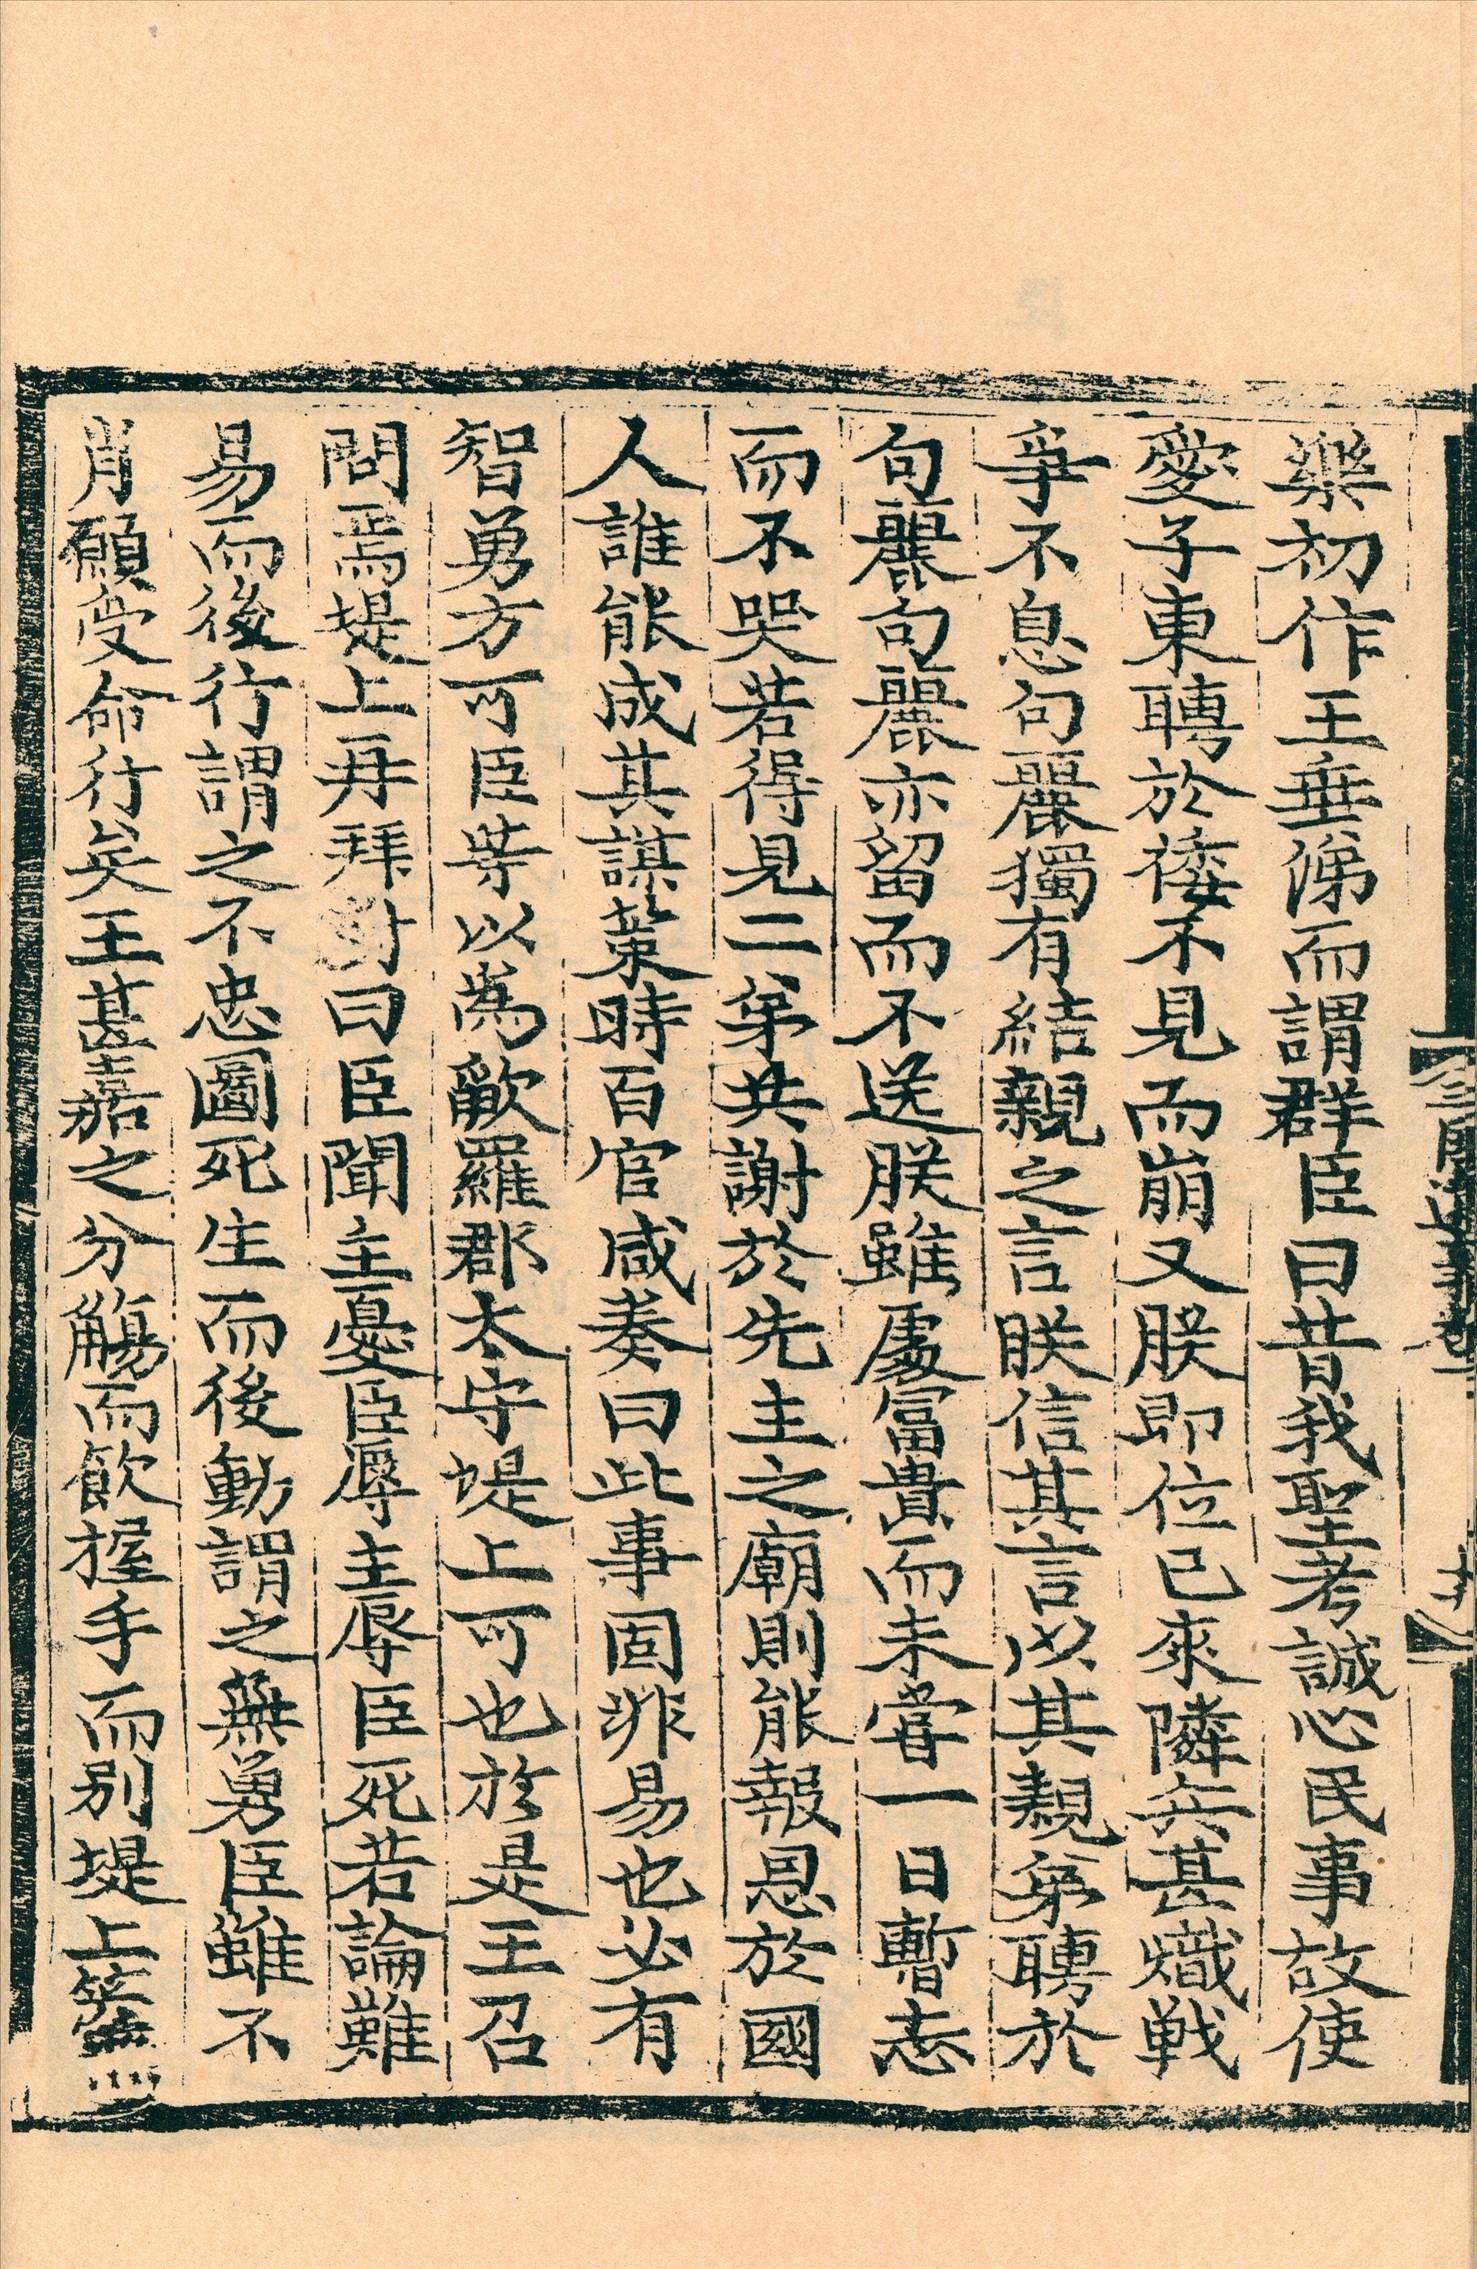 樂初作王垂涕而謂群臣曰昔我聖考誠心民事故使
愛子東聘於倭不見而崩又朕即位已來隣兵甚熾戦
爭不息句麗獨有結親之言朕信其言以其親弟聘於
句麗句麗亦留而不送朕雖處冨貴而未嘗一日暫忘
而不哭若得見二弟共謝於先主之廟則能報恩於國
人誰能成其謀策時百官咸奏曰此事固非易也必有
智勇方可臣等以為歃羅郡太守堤上可也於是王召
問焉堤上再拜對曰臣聞主憂臣辱主辱臣死若論難
易而後行謂之不忠圖死生而後動謂之無勇臣雖不
肖願受命行矣王甚嘉之分觴而飲握手而別堤上簾